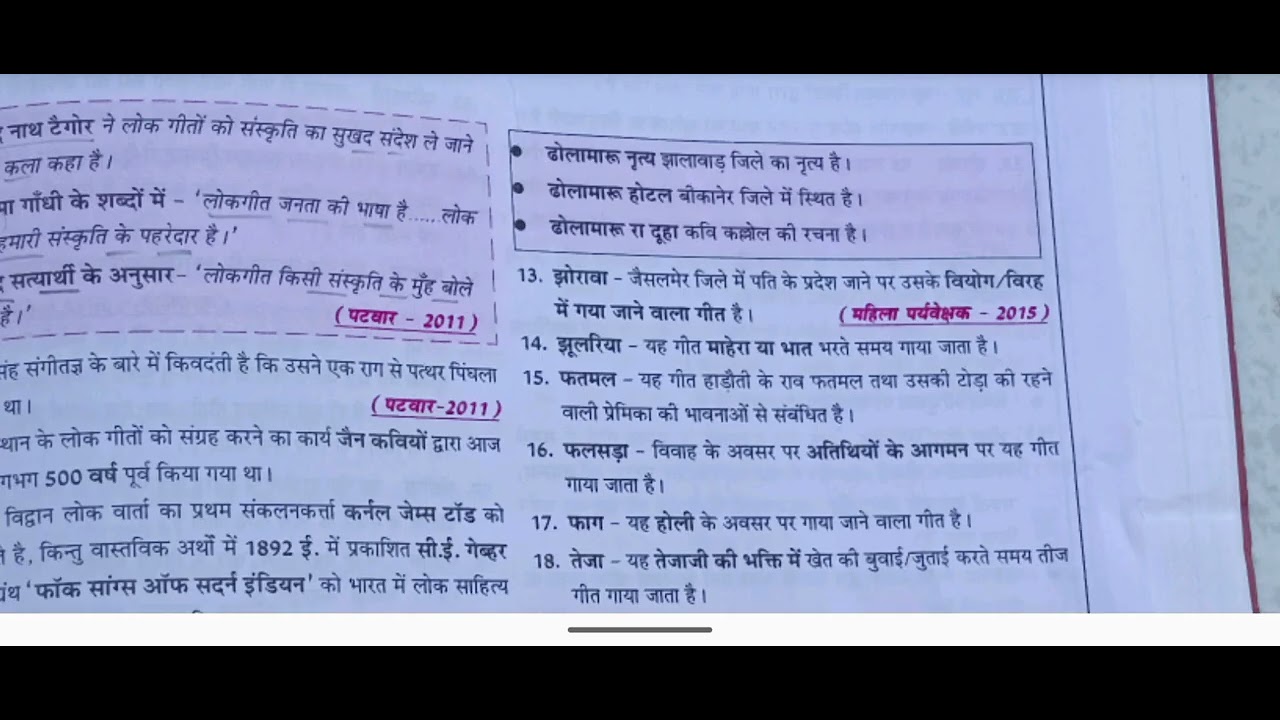 नाथ टैगोर ने लोक गीतों को संस्कृति का सुखद संदेश ले जाने
कला कहा है।
गाँधी के शब्दों में – 'लोकगीत जनता की भाषा है......लोक
हमारी संस्कृति के पहरेदार है।'
सत्यार्थी के अनुसार– 'लोकगीत किसी संस्कृति के मुँह बोले
है।' (पटवार - 2011)
संगीतज्ञ के बारे में किवदंती है कि उसने एक राग से पत्थर पिंघला
था। (पटवार-2011)
के लोक गीतों को संग्रह करने का कार्य जैन कवियों द्वारा आज
500 वर्ष पूर्व किया गया था।
विद्वान लोक वार्ता का प्रथम संकलनकर्त्ता कर्नल जेम्स टॉड को
है, किन्तु वास्तविक अर्थो में 1892 ई. में प्रकाशित सी.ई. गेव्हर
'फॉक सांग्स ऑफ सदर्न इंडियन' को भारत में लोक साहित्य
• ढोलामारू नृत्य झालावाड़ जिले का नृत्य है।
• ढोलामारू होटल बीकानेर जिले में स्थित है।
• ढोलामारू रा दूहा कवि कल्लोल की रचना है।
13. झोरावा – जैसलमेर जिले में पति के प्रदेश जाने पर उसके वियोग/विरह
में गया जाने वाला गीत है। (महिला पर्यवेक्षक - 2015)
14. झूलरिया – यह गीत माहेरा या भात भरते समय गाया जाता है।
15. फतमल – यह गीत हाड़ौती के राव फतमल तथा उसकी टोड़ा की रहने
वाली प्रेमिका की भावनाओं से संबंधित है।
16. फलसड़ा – विवाह के अवसर पर अतिथियों के आगमन पर यह गीत
गाया जाता है।
17. फाग – यह होली के अवसर पर गाया जाने वाला गीत है।
18. तेजा – यह तेजाजी की भक्ति में खेत की बुवाई/जुताई करते समय तीज
गीत गाया जाता है।